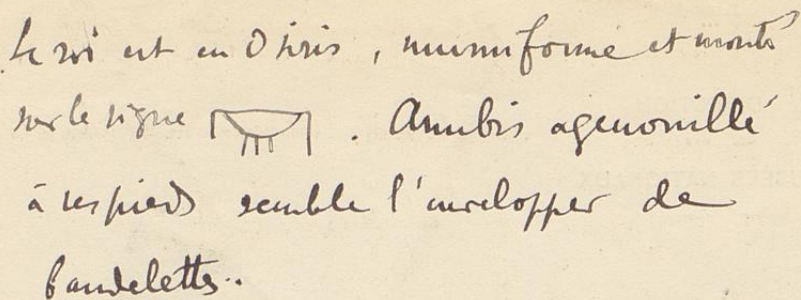 Le roi est en Osiris, mumiforme et monté
sur le signe 𓋞. Anubis agenouillé
à ses pieds semble l'envelopper de
bandelettes..